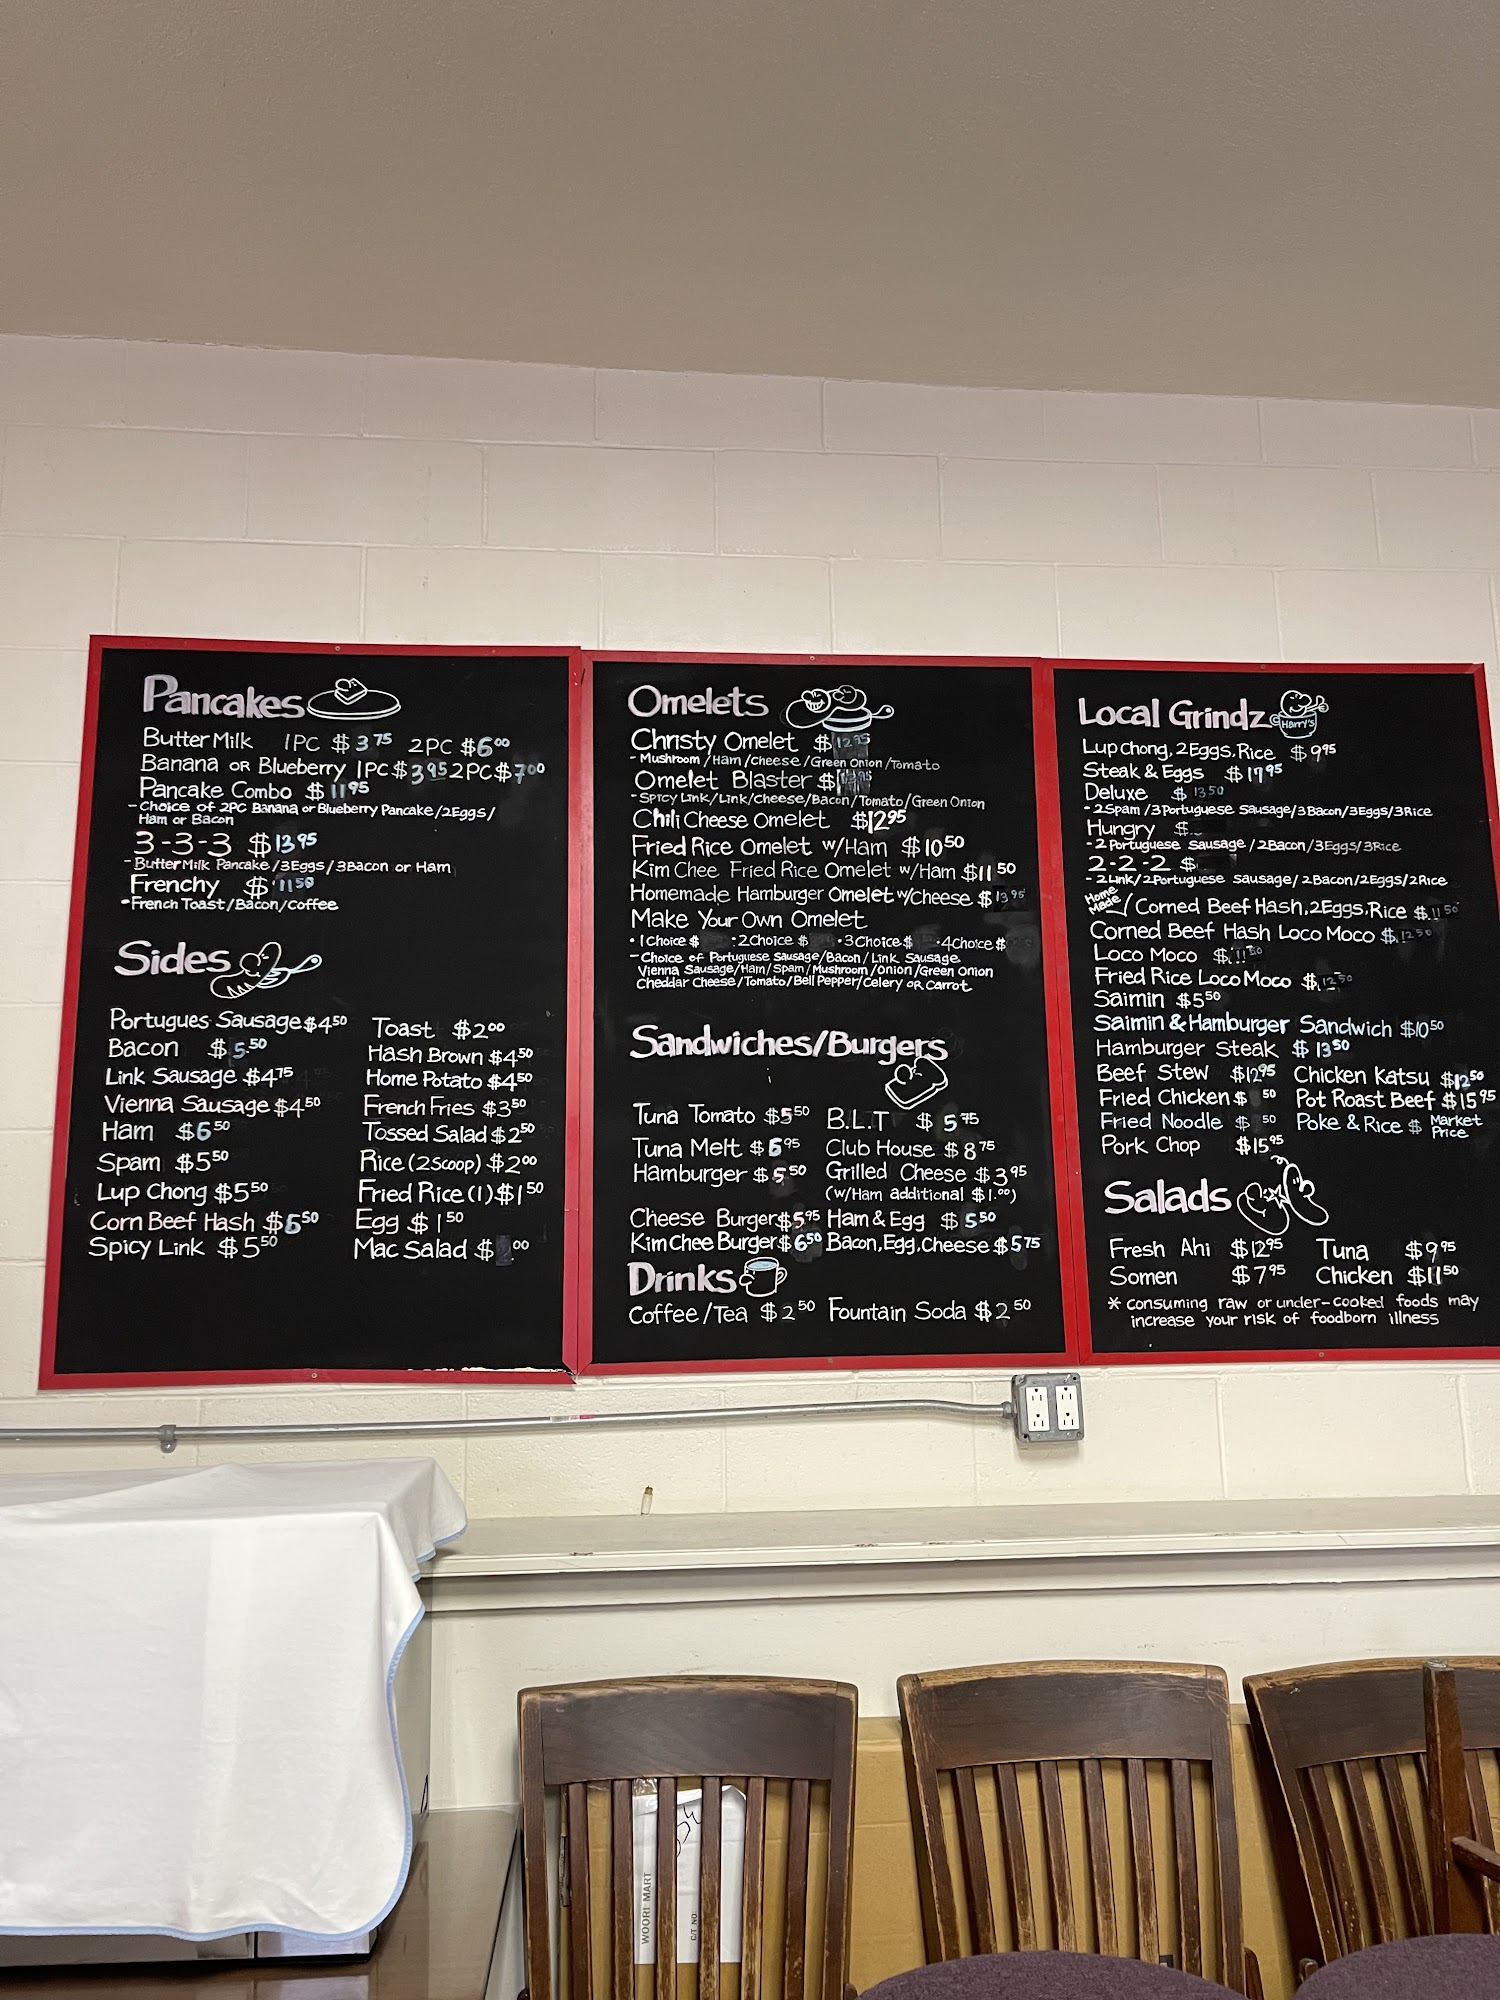 Pancakes
Butter Milk 1PC $3.75 2PC $6.00
Banana OR Blueberry 1PC $3.95 2PC $7.00
Pancake Combo $11.95
- Choice of 2PC Banana or Blueberry Pancake/2Eggs/
Ham or Bacon
3-3-3 $13.95
- Butter Milk Pancake/3Eggs/3Bacon or Ham
Frenchy $11.50
• French Toast/Bacon/Coffee
Sides
Portugues Sausage $4.50
Bacon $5.50
Link Sausage $4.75
Vienna Sausage $4.50
Ham $6.50
Spam $5.50
Lup Chong $5.50
Corn Beef Hash $6.50
Spicy Link $5.50
Toast $2.00
Hash Brown $4.50
Home Potato $4.50
French Fries $3.50
Tossed Salad $2.50
Rice (2 Scoop) $2.00
Fried Rice (1) $1.50
Egg $1.50
Mac Salad $ .00
Omelets
Christy Omelet $12.95
- Mushroom/Ham/Cheese/Green Onion/Tomato
Omelet Blaster $
- Spicy Link/Link/Cheese/Bacon/Tomato/Green Onion
Chili Cheese Omelet $12.95
Fried Rice Omelet w/Ham $10.50
Kim Chee Fried Rice Omelet w/Ham $11.50
Homemade Hamburger Omelet w/Cheese $13.95
Make Your Own Omelet
• 1Choice $ • 2Choice $ • 3Choice $ • 4Choice $
- Choice of Portuguese Sausage/Bacon/Link Sausage
Vienna Sausage/Ham/Spam/Mushroom/Onion/Green Onion
Cheddar Cheese/Tomato/Bell Pepper/Celery OR Carrot
Sandwiches/Burgers
Tuna Tomato $5.50
Tuna Melt $6.95
Hamburger $5.50
Cheese Burger $5.95
Kim Chee Burger $6.50
B.L.T $5.75
Club House $8.75
Grilled Cheese $3.95
(w/Ham additional $1.00)
Ham & Egg $5.50
Bacon, Egg, Cheese $5.75
Drinks
Coffee/Tea $2.50 Fountain Soda $2.50
Local Grindz
Harry's
Lup chong, 2Eggs, Rice $9.95
Steak & Eggs $17.95
Deluxe $13.50
- 2Spam/3Portuguese Sausage/3Bacon/3Eggs/3Rice
Hungry $
- 2 Portuguese Sausage/2Bacon/3Eggs/3Rice
2-2-2 $
- 2Link/2Portuguese Sausage/2Bacon/2Eggs/2Rice
Home Made Corned Beef Hash, 2Eggs, Rice $11.50
Corned Beef Hash Loco Moco $12.50
Loco Moco $11.50
Fried Rice Loco Moco $12.50
Saimin $5.50
Saimin & Hamburger Sandwich $10.50
Hamburger Steak $13.50
Beef Stew $12.95 Chicken Katsu $12.50
Fried Chicken $ .50 Pot Roast Beef $15.95
Fried Noodle $ .50 Poke & Rice $ Market Price
Pork Chop $15.95
Salads
Fresh Ahi $12.95 Tuna $9.95
Somen $7.95 Chicken $11.50
* consuming raw or under-cooked foods may
increase your risk of foodborn illness
WOORI MART
C/T NO: